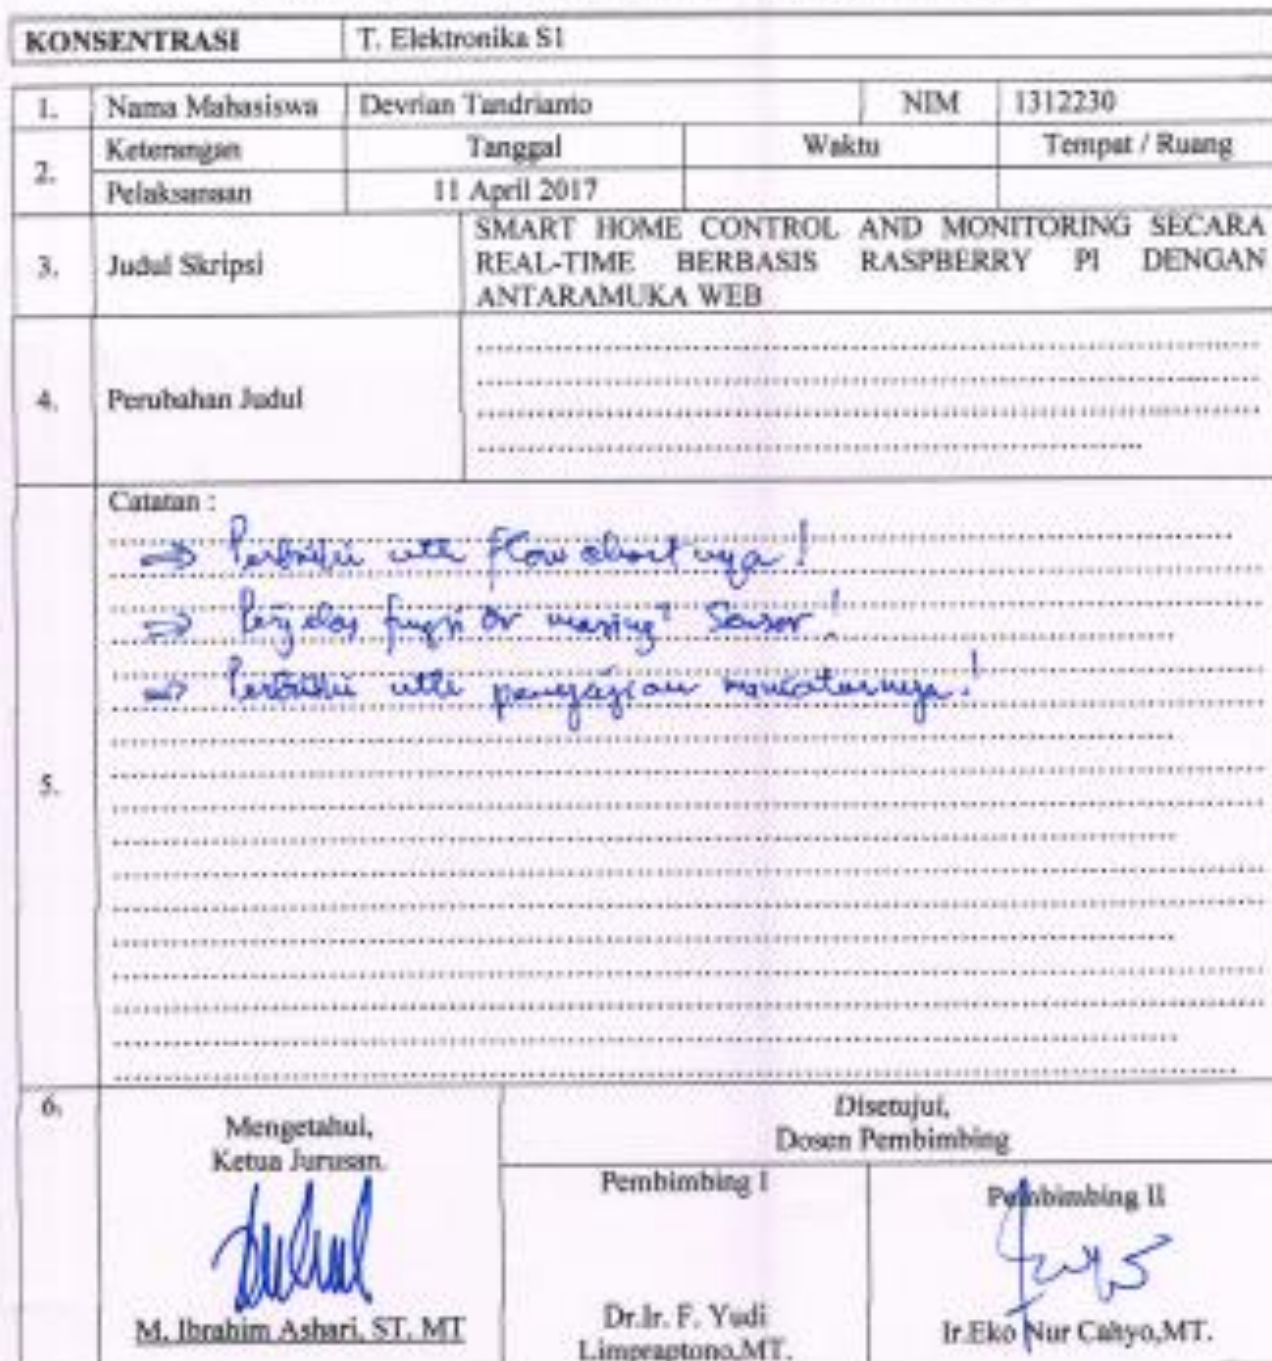 KONSENTRASI T. Elektronika S1
1. Nama Mahasiswa Devrian Tandrianto NIM 1312230
2. Keterangan Tanggal Waktu Tempat / Ruang
Pelaksanaan 11 April 2017
3. Judul Skripsi
SMART HOME CONTROL AND MONITORING SECARA
REAL-TIME BERBASIS RASPBERRY PI DENGAN
ANTARAMUKA WEB
4. Perubahan Judul
5. Catatan :
⇒ Perbaiki utk flowchartnya!
⇒ Perjelas fungsi dr masing² Sensor!
⇒ Perbaiki utk pengujian monitornya!
6. Mengetahui,
Ketua Jurusan.
M. Ibrahim Ashari, ST, MT
Disetujui,
Dosen Pembimbing
Pembimbing I
Dr.Ir. F. Yudi
Limpraptono,MT.
Pembimbing II
Ir.Eko Nur Cahyo,MT.